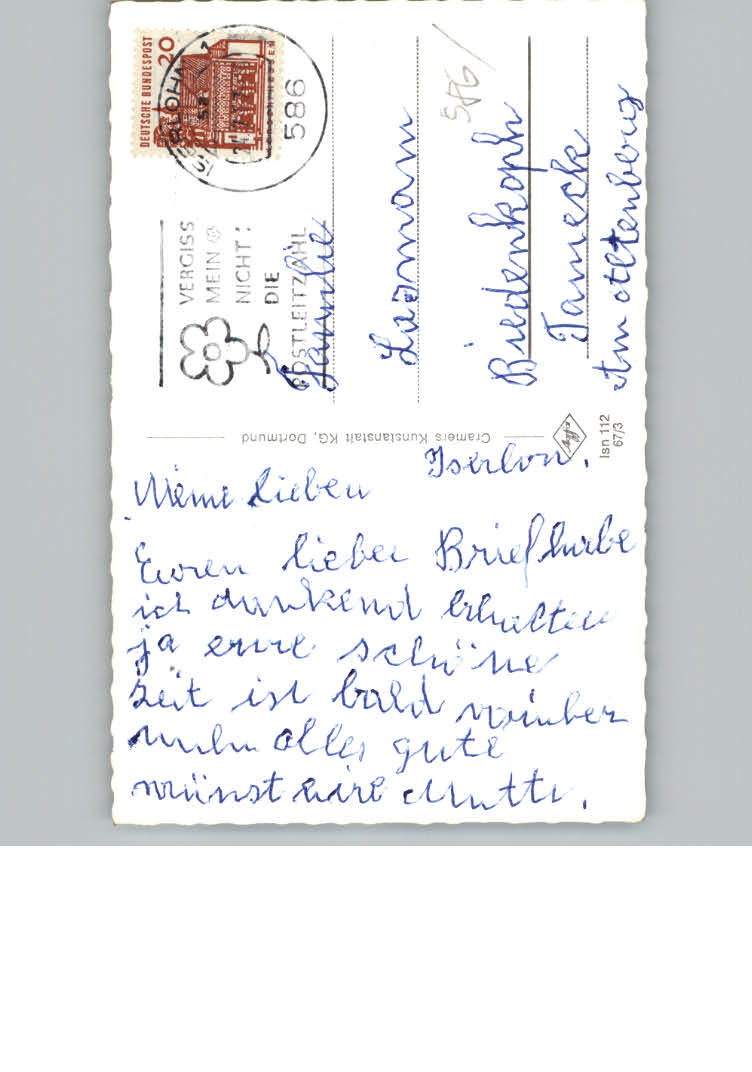 Iserlon.
Meine lieben
Euren lieben Brief habe
ich dankend erhalten
ja eure schöne
Zeit ist bald vorüber
nuhn alles gute
wünst eure Mutti.
Familie
Biedenkoph
Am Altenberg
DEUTSCHE BUNDESPOST
20
586
VERGISS
MEIN
NICHT:
DIE
POSTLEITZAHL
Cramers Kunstanstalt KG, Dortmund
Isn 112
67/3